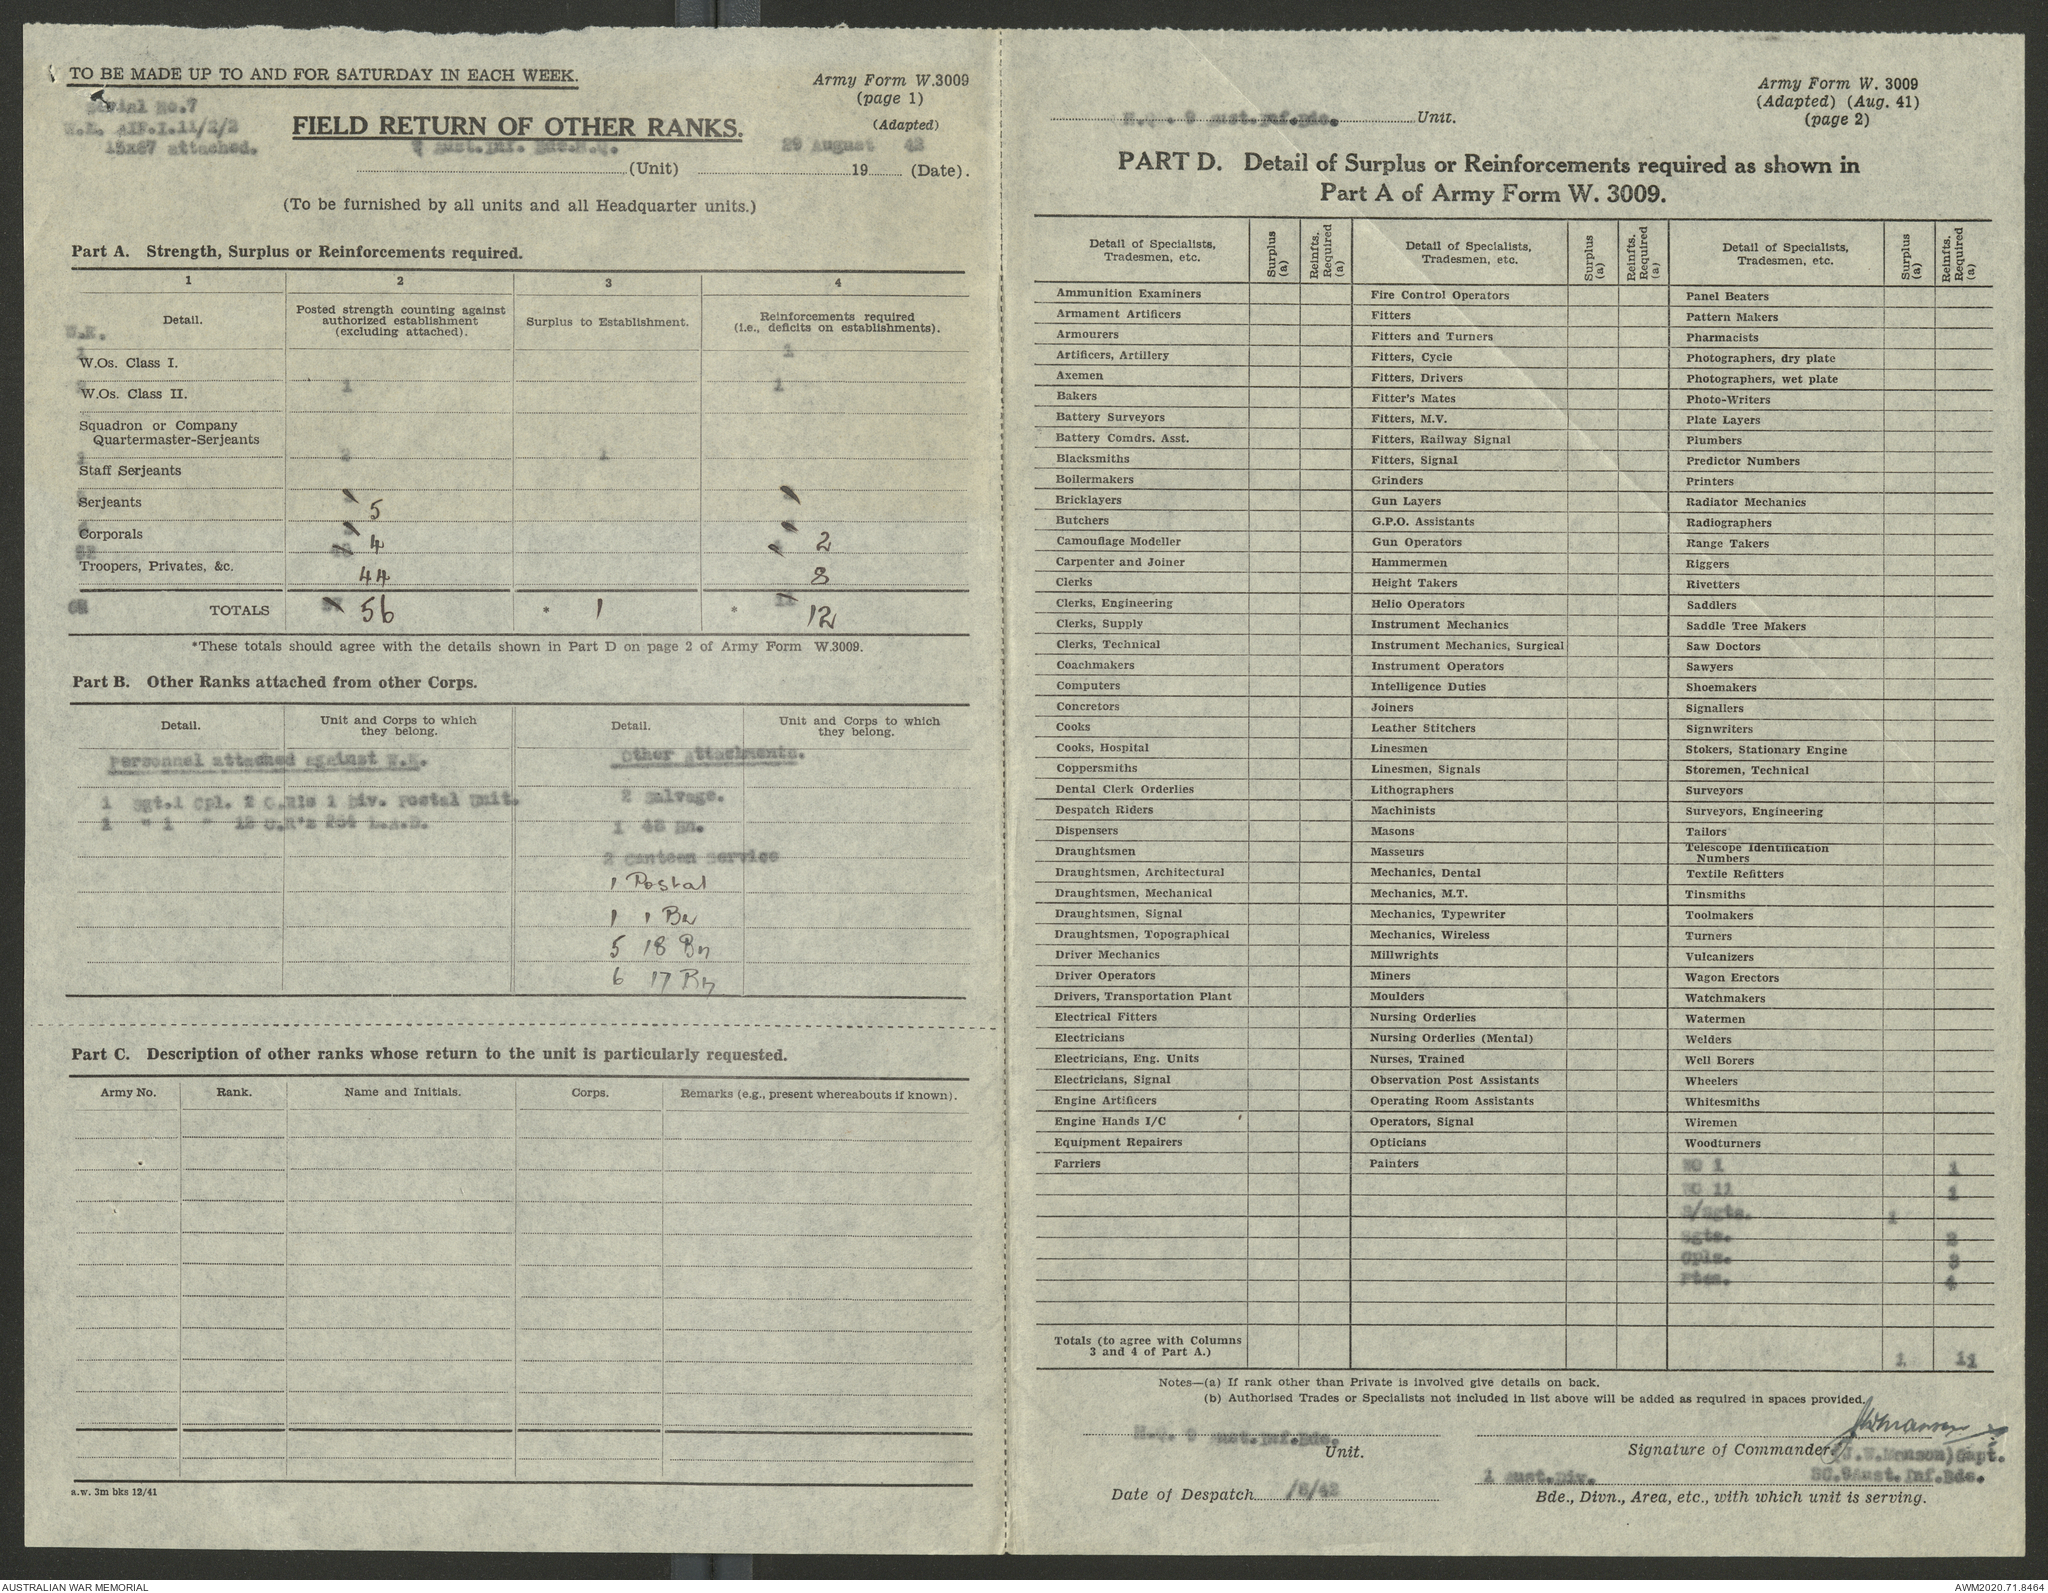 TO BE MADE UP TO AND FOR SATURDAY IN EACH WEEK.
Army Form W.3009
(page 1)
(Adapted)
Serial No.7
W.E. AIF.I.11/2/2
15x67 attached.
FIELD RETURN OF OTHER RANKS.
9 Aust.Inf. Bde.H.Q. (Unit) 29 August 19 42 (Date).
(To be furnished by all units and all Headquarter units.)
Part A. Strength, Surplus or Reinforcements required.
1 2 3 4
Detail. Posted strength counting against authorized establishment (excluding attached). Surplus to Establishment. Reinforcements required (i.e., deficits on establishments).
W.E.
1 W.Os. Class I. 1
2 W.Os. Class II. 1 1
Squadron or Company
Quartermaster-Serjeants
1 Staff Serjeants 2 1
Serjeants 5
Corporals 4 2
52 Troopers, Privates, &c. 44 8
TOTALS 56 * 1 * 12
*These totals should agree with the details shown in Part D on page 2 of Army Form W.3009.
Part B. Other Ranks attached from other Corps.
Detail. Unit and Corps to which they belong. Detail. Unit and Corps to which they belong.
Personnel attached against W.E. Other Attachments.
1 Sgt.1 Cpl. 2 O.R's 1 Div. Postal Unit. 2 Salvage.
1 " 1 " 12 O.R's 254 L.A.D. 1 45 Bn.
2 Canteen Service
1 Postal
1 1 Bn
5 18 Bn
6 17 Bn
Part C. Description of other ranks whose return to the unit is particularly requested.
Army No. Rank. Name and Initials. Corps. Remarks (e.g., present whereabouts if known).
a.w. 3m bks 12/41
Army Form W. 3009
(Adapted) (Aug. 41)
(page 2)
H.Q. 9 Aust.Inf.Bde. Unit.
PART D. Detail of Surplus or Reinforcements required as shown in
Part A of Army Form W. 3009.
Detail of Specialists, Tradesmen, etc. Surplus (a) Reinfts. Required (a) Detail of Specialists, Tradesmen, etc. Surplus (a) Reinfts. Required (a) Detail of Specialists, Tradesmen, etc. Surplus (a) Reinfts. Required (a)
Ammunition Examiners Fire Control Operators Panel Beaters
Armament Artificers Fitters Pattern Makers
Armourers Fitters and Turners Pharmacists
Artificers, Artillery Fitters, Cycle Photographers, dry plate
Axemen Fitters, Drivers Photographers, wet plate
Bakers Fitter's Mates Photo-Writers
Battery Surveyors Fitters, M.V. Plate Layers
Battery Comdrs. Asst. Fitters, Railway Signal Plumbers
Blacksmiths Fitters, Signal Predictor Numbers
Boilermakers Grinders Printers
Bricklayers Gun Layers Radiator Mechanics
Butchers G.P.O. Assistants Radiographers
Camouflage Modeller Gun Operators Range Takers
Carpenter and Joiner Hammermen Riggers
Clerks Height Takers Rivetters
Clerks, Engineering Helio Operators Saddlers
Clerks, Supply Instrument Mechanics Saddle Tree Makers
Clerks, Technical Instrument Mechanics, Surgical Saw Doctors
Coachmakers Instrument Operators Sawyers
Computers Intelligence Duties Shoemakers
Concretors Joiners Signallers
Cooks Leather Stitchers Signwriters
Cooks, Hospital Linesmen Stokers, Stationary Engine
Coppersmiths Linesmen, Signals Storemen, Technical
Dental Clerk Orderlies Lithographers Surveyors
Despatch Riders Machinists Surveyors, Engineering
Dispensers Masons Tailors
Draughtsmen Masseurs Telescope Identification Numbers
Draughtsmen, Architectural Mechanics, Dental Textile Refitters
Draughtsmen, Mechanical Mechanics, M.T. Tinsmiths
Draughtsmen, Signal Mechanics, Typewriter Toolmakers
Draughtsmen, Topographical Mechanics, Wireless Turners
Driver Mechanics Millwrights Vulcanizers
Driver Operators Miners Wagon Erectors
Drivers, Transportation Plant Moulders Watchmakers
Electrical Fitters Nursing Orderlies Watermen
Electricians Nursing Orderlies (Mental) Welders
Electricians, Eng. Units Nurses, Trained Well Borers
Electricians, Signal Observation Post Assistants Wheelers
Engine Artificers Operating Room Assistants Whitesmiths
Engine Hands I/C Operators, Signal Wiremen
Equipment Repairers Opticians Woodturners
Farriers Painters WO 1 1
WO 11 1
S/Sgts. 1
Sgts. 2
Cpls. 3
Ptes. 4
Totals (to agree with Columns 3 and 4 of Part A.) 1 11
Notes—(a) If rank other than Private is involved give details on back.
(b) Authorised Trades or Specialists not included in list above will be added as required in spaces provided.
H.Q. 9 Aust.Inf.Bde. Unit.
Signature of Commander (J.W.Manson)Capt.
1 Aust.Div. SC.9Aust.Inf.Bde.
Date of Despatch /8/42
Bde., Divn., Area, etc., with which unit is serving.
AUSTRALIAN WAR MEMORIAL
AWM2020.71.8464